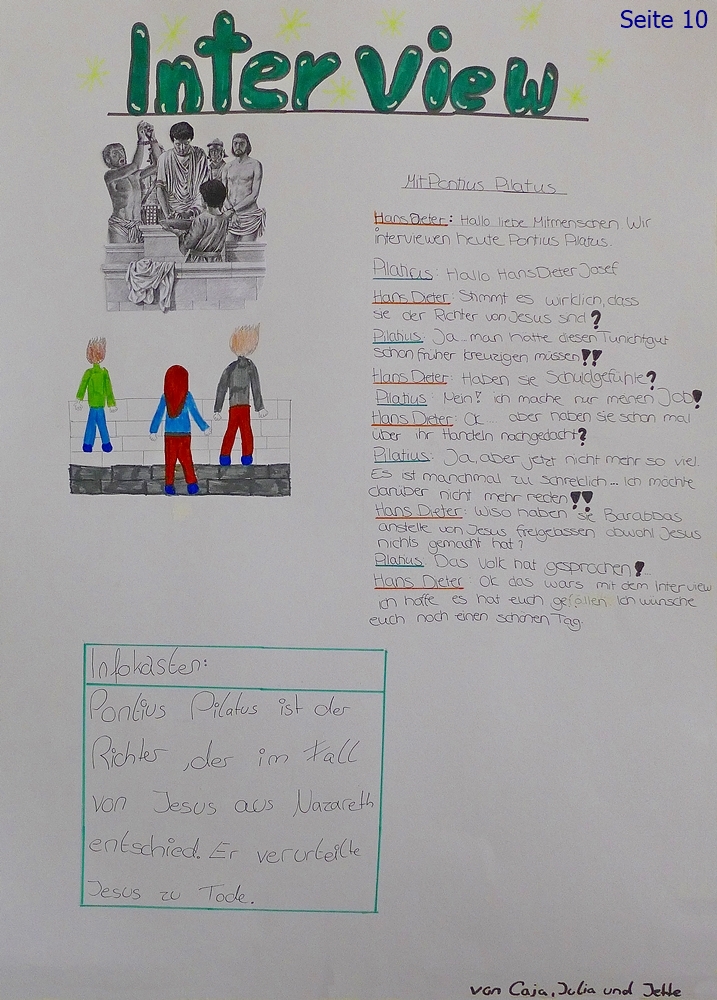 Seite 10
Interview
Mit Pontius Pilatus
Hans Dieter: Hallo liebe Mitmenschen. Wir
interviewen heute Pontius Pilatus.
Pilatus: Hallo Hans Dieter Josef
Hans Dieter: Stimmt es wirklich, dass
sie der Richter von Jesus sind?
Pilatus: Ja... man hätte diesen Tunichtgut
schon früher kreuzigen müssen!!
Hans Dieter: Haben sie Schuldgefühle?
Pilatus: Nein! ich mache nur meinen Job!
Hans Dieter: Ok... aber haben sie schon mal
über ihr Handeln nachgedacht?
Pilatus: Ja, aber jetzt nicht mehr so viel.
Es ist manchmal zu schreklich... ich möchte
darüber nicht mehr reden!!
Hans Dieter: Wiso haben sie Barabbas
anstelle von Jesus freigelassen obwohl Jesus
nichts gemacht hat?
Pilatus: Das Volk hat gesprochen!...
Hans Dieter: Ok das wars mit dem Interview
ich hoffe es hat euch gefallen. Ich wünsche
euch noch einen schönen Tag.
Infokasten:
Pontius Pilatus ist der
Richter, der im Fall
von Jesus aus Nazareth
entschied. Er verurteilte
Jesus zu Tode.
von Caja, Julia und Jette